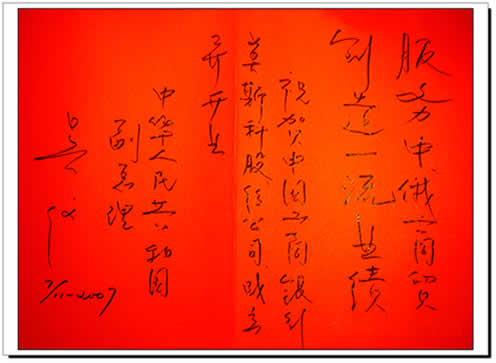 服务中俄工商贸
创造一流业绩
祝贺中国工商银行
莫斯科股份公司成立
并开业
中华人民共和国
副总理
吴仪
7/11-2007